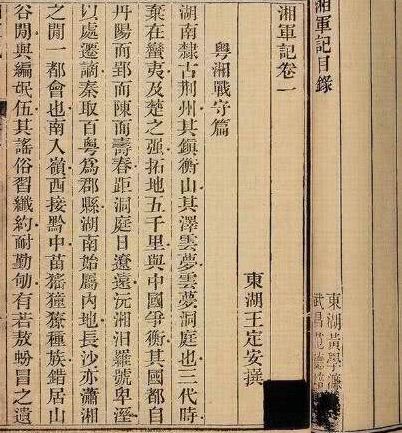 湘軍記目錄
東湖黃學
武昌范
湘軍記卷一
東湖王定安撰
粵湘戰守篇
湖南隸古荆州其鎭衡山其澤雲夢雲夢洞庭也三代時
棄在蠻夷及楚之强拓地五千里與中國爭衡其國都自
丹陽而郢而陳而壽春距洞庭日遼遠沅湘汨羅號卑溼
以處遷謫秦取百粤爲郡縣湖南始屬內地長沙亦瀟湘
之閒一都會也南入嶺西接黔中苗猺獞獠種族錯居山
谷閒與編氓伍其謠俗習纖約耐勤劬有若敖蚡冒之遺